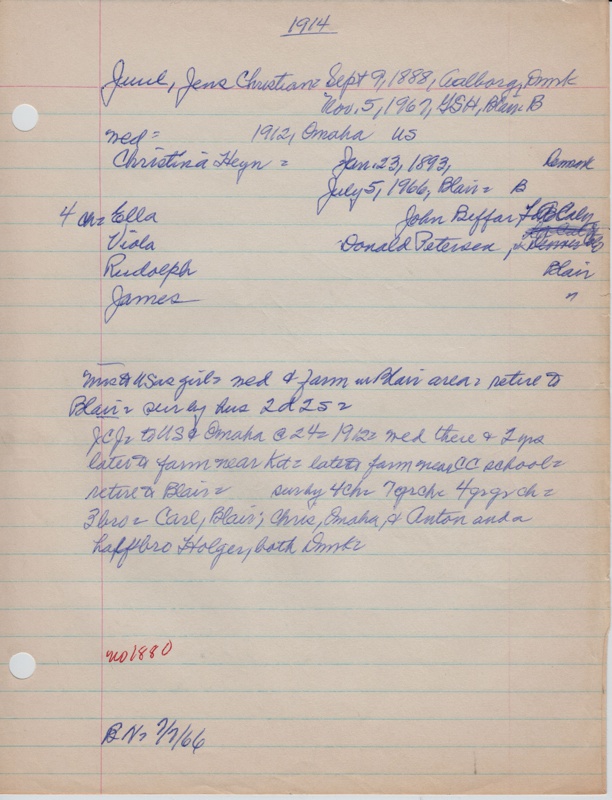 1914
Juul, Jens Christian = Sept 9, 1888, Aalborg, Dmrk
Nov. 5, 1967, GSH, Blair B
wed = 1912, Omaha US
Christina Heyn = Jan. 23, 1893, Denmark
July 5, 1966, Blair = B
4 ch = Ella John Beffar, Calif
Viola Donald Petersen,
Rudolph Blair
James "
Mrs to US as girl = wed & farm in Blair area = retire to
Blair = sur by hus 2d 2s =
JCJ = to US & Omaha @ 24 = 1912 = wed there & 2 yrs
later to farm near Kd = later to farm near CC school =
retire to Blair = sur by 4 ch = 7 grch = 4 grgrch =
3 bro = Carl, Blair; Chris, Omaha, & Anton and a
half bro Holger, both Dmrk =
no 1880
BN = 7/7/66